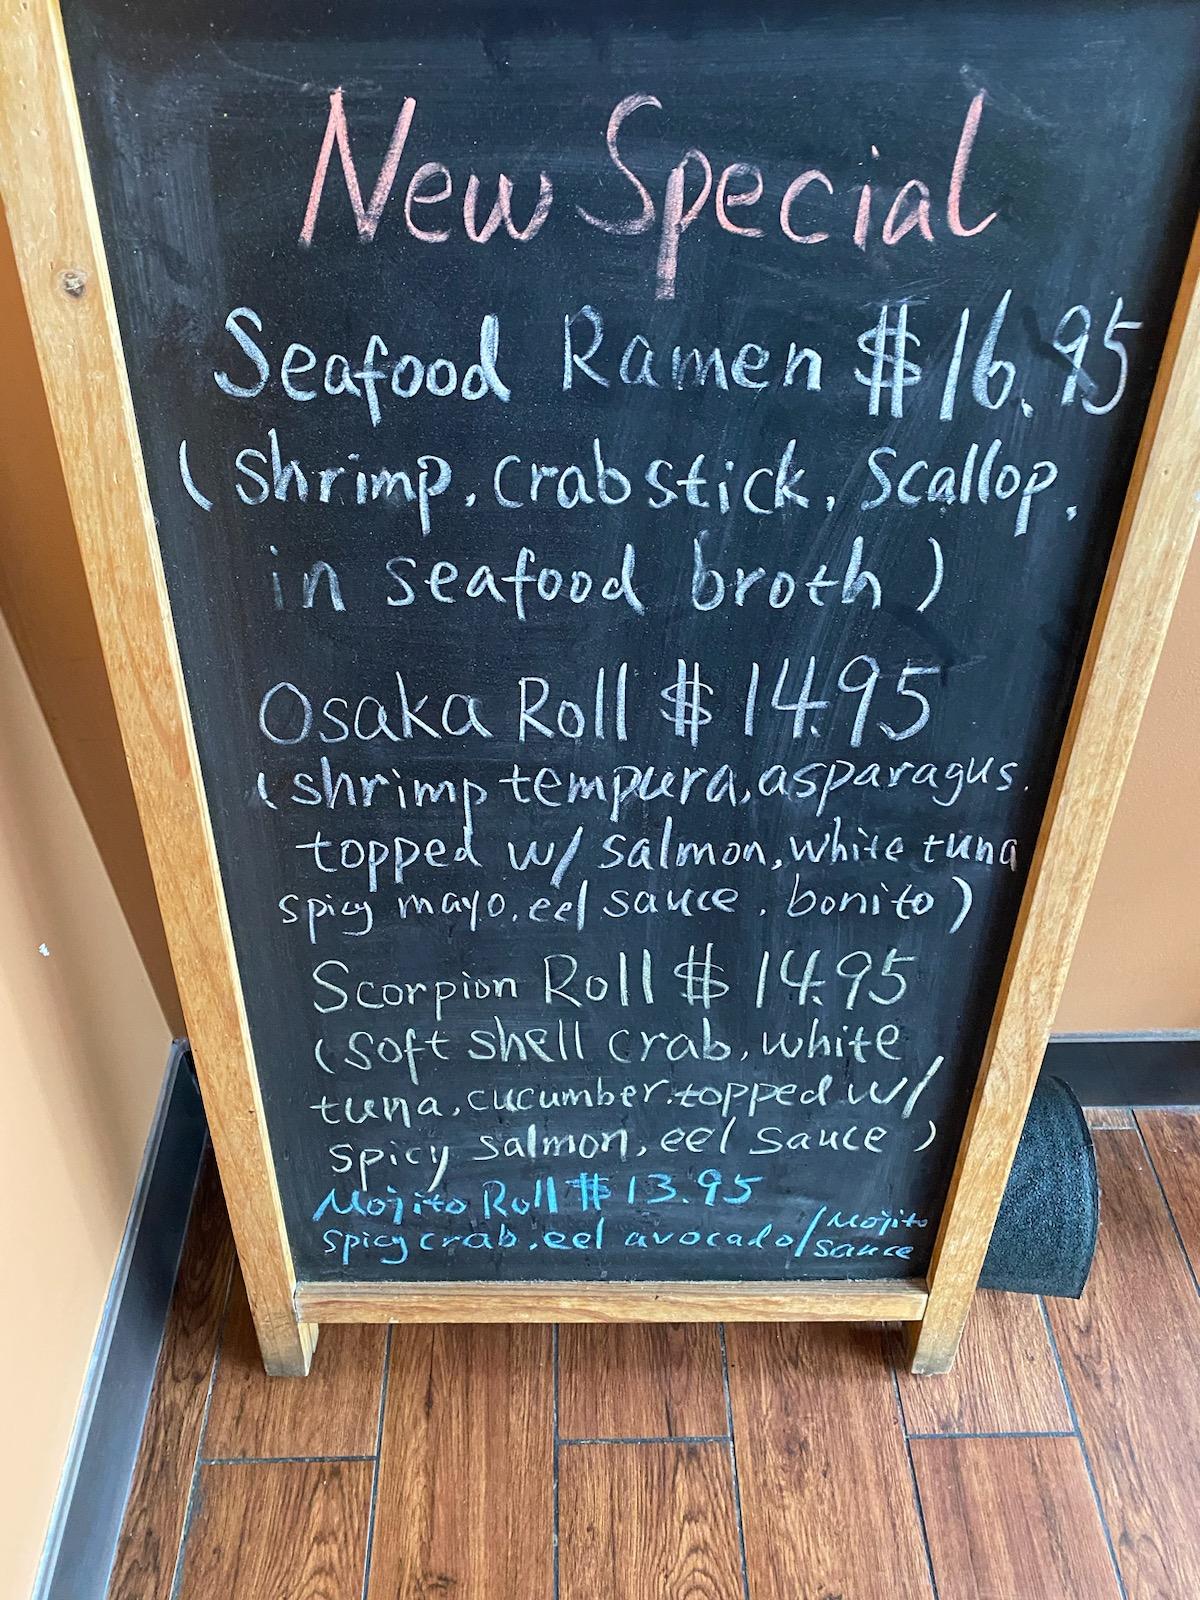 New Special
Seafood Ramen $16.95
(shrimp, crab stick, scallop,
in seafood broth)
Osaka Roll $14.95
(shrimp tempura, asparagus.
topped w/ salmon, white tuna
spicy mayo, eel sauce, bonito)
Scorpion Roll $14.95
(soft shell crab, white
tuna, cucumber. topped w/
spicy salmon, eel sauce)
Mojito Roll $13.95
spicy crab, eel avocado/mojito
sauce